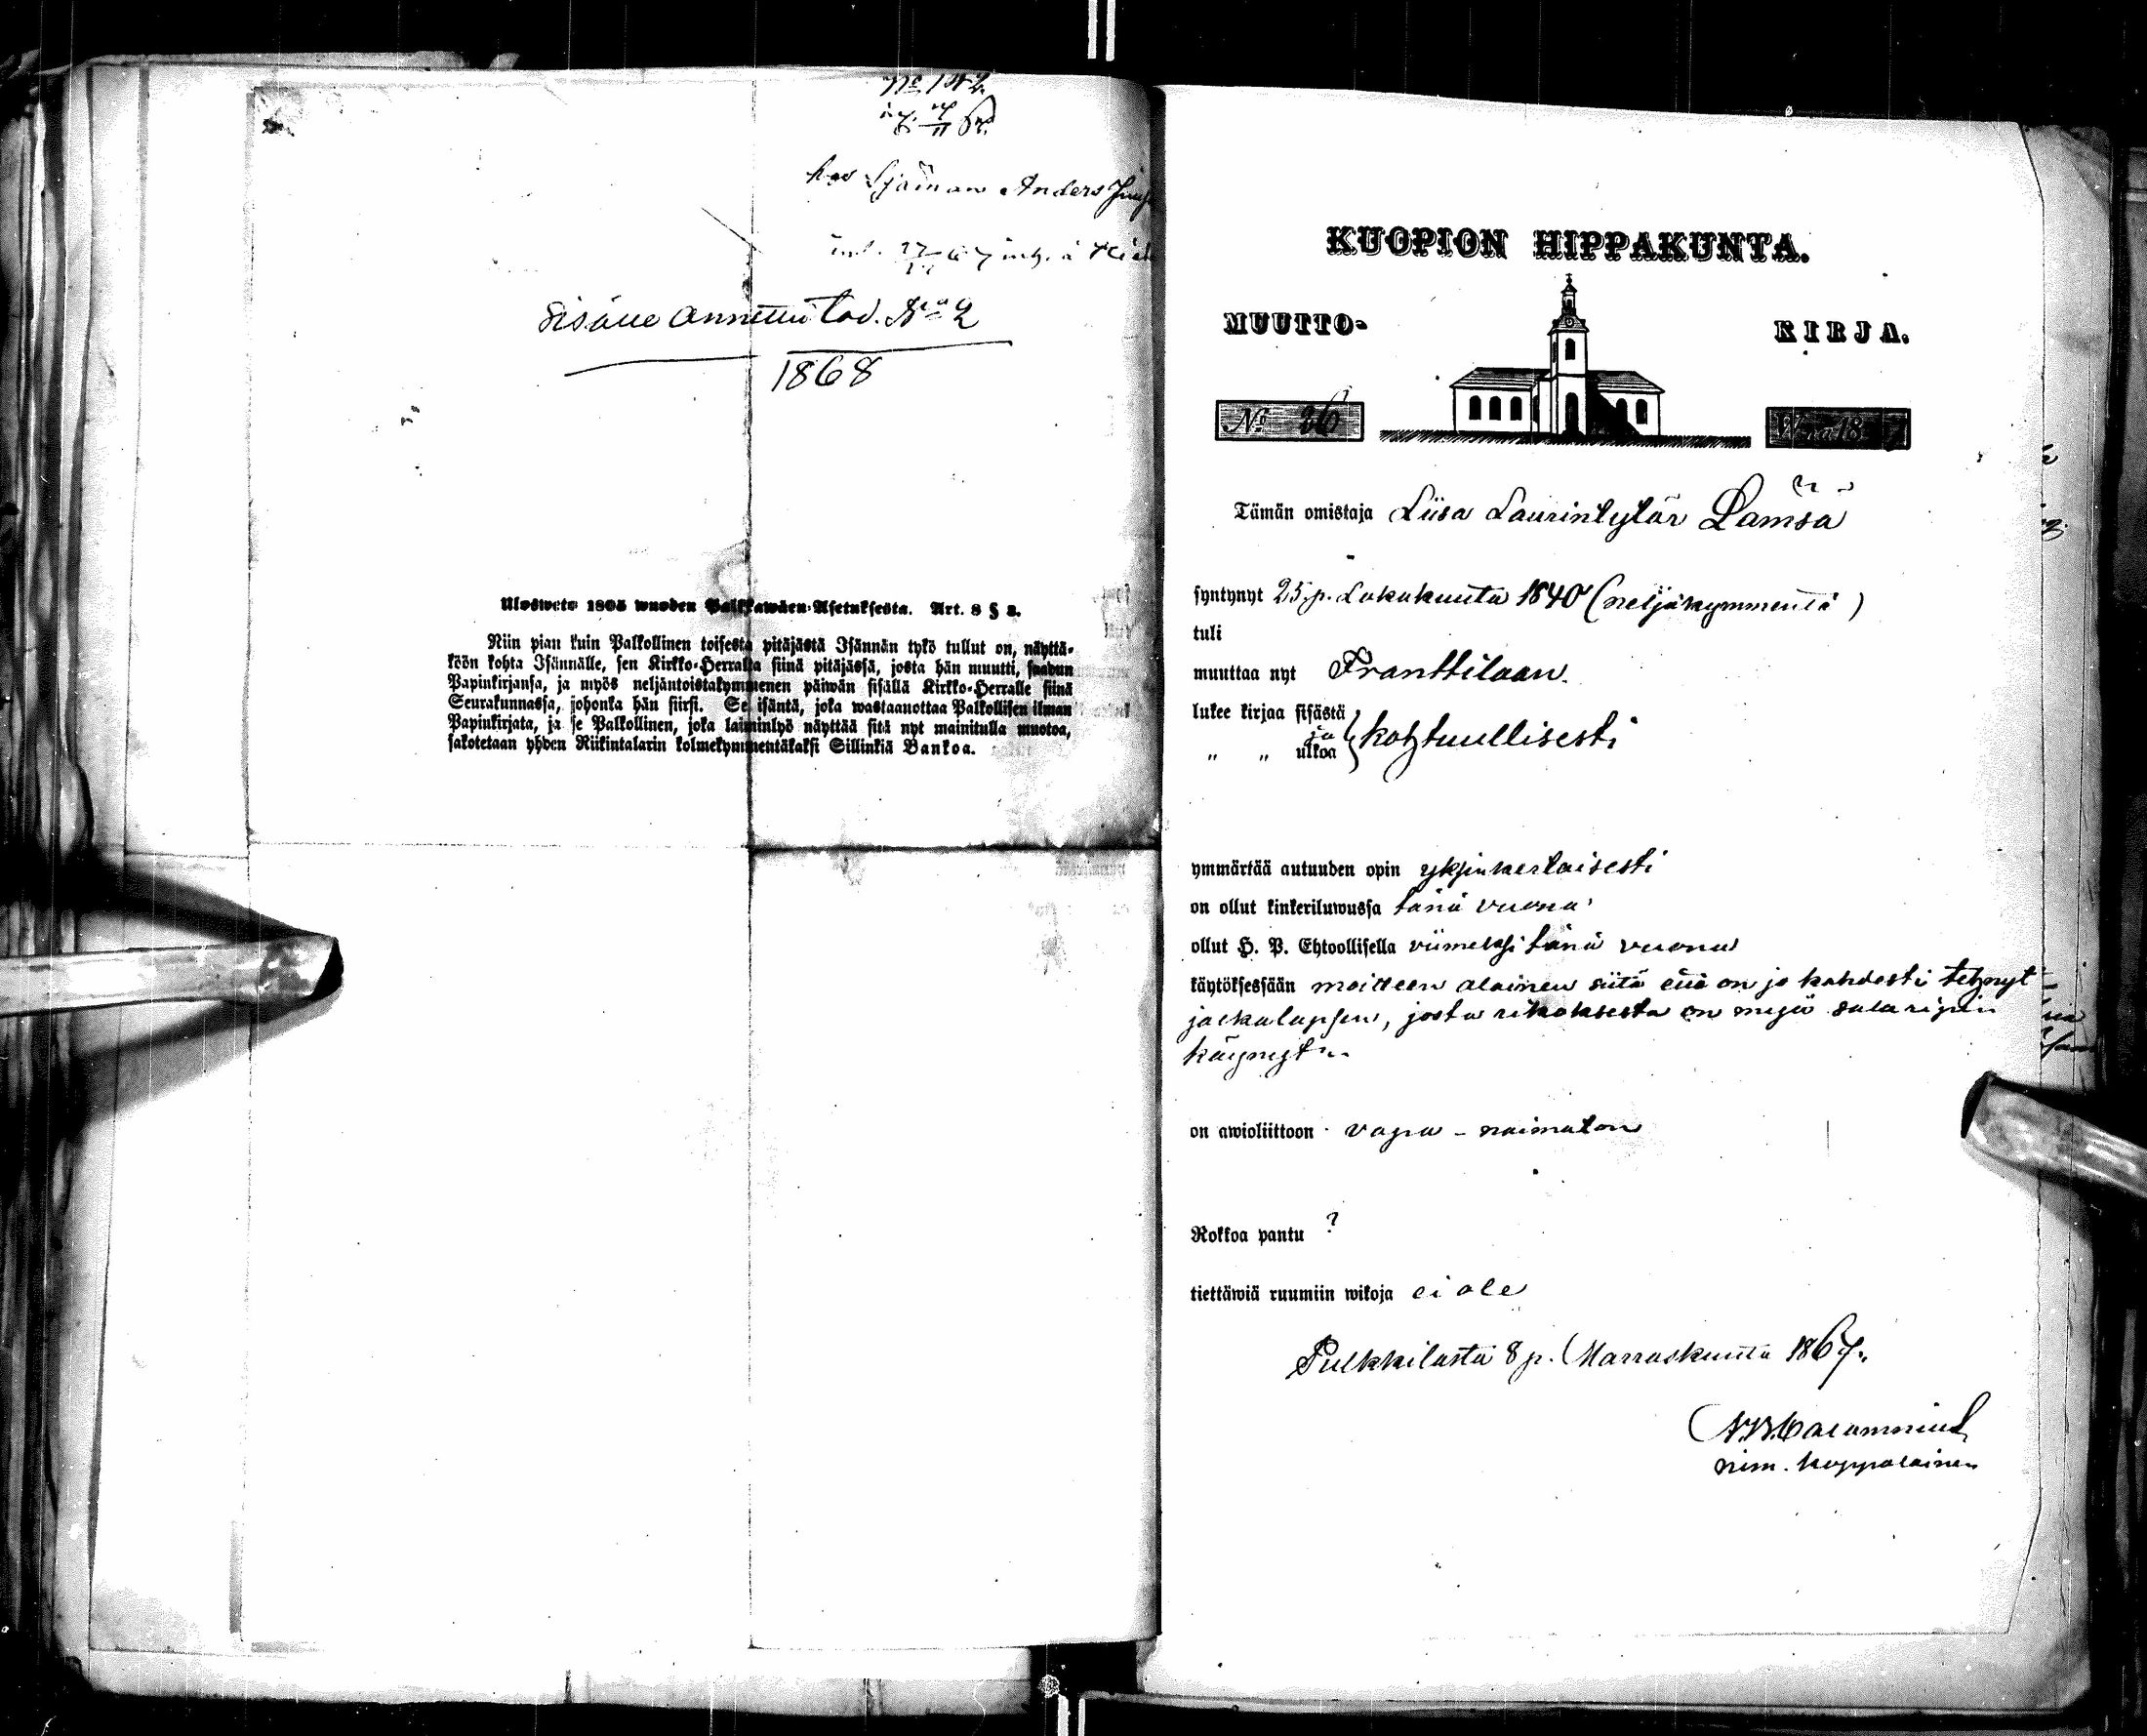 No 142.
hos Sjöman Anders
Sisälle annettu tod. No 2
1868
Ulosweto 1805 wuoden Palkkawäen-Asetuksesta. Art. 8 § 2.
Niin pian kuin Palkollinen toisesta pitäjästä Isännän tykö tullut on, näyttä-
köön kohta Isännälle, sen Kirkko-Herralta siinä pitäjässä, josta hän muutti, saadun
Papinkirjansa, ja myös neljäntoistakymmenen päiwän sisällä Kirkko-Herralle siinä
Seurakunnassa, johonka hän siirsi. Se isäntä, joka wastaanottaa Palkollisen ilman
Papinkirjata, ja se Palkollinen, joka laiminlyö näyttää sitä nyt mainitulla muotoa,
sakotetaan yhden Riikintalarin kolmekymmentäkaksi Sillinkiä Bankoa.
KUOPION HIPPAKUNTA.
MUUTTO- KIRJA.
No 26 W:na 18 7
Tämän omistaja Liisa Laurintytär Lämsä
syntynyt 25 p. Lokakuuta 1840 (neljäkymmentä)
tuli
muuttaa nyt Franttilaan.
lukee kirjaa sisästä
ja
" " ulkoa kohtuullisesti
ymmärtää autuuden opin yksinkertaisesti
on ollut kinkeriluwussa tänä vuona
ollut H. P. Ehtoollisella viimeksi tänä vuona
käytöksessään moitteen alainen siitä että on jo kahdesti tehnyt
jalkalapsen, josta rikoksesta on myös salaripin
käynyt.
on awioliittoon vapa - naimaton
Rokkoa pantu ?
tiettäwiä ruumiin wikoja ei ole
Pulkkilasta 8 p. Marraskuuta 1867.
nim. kappalainen